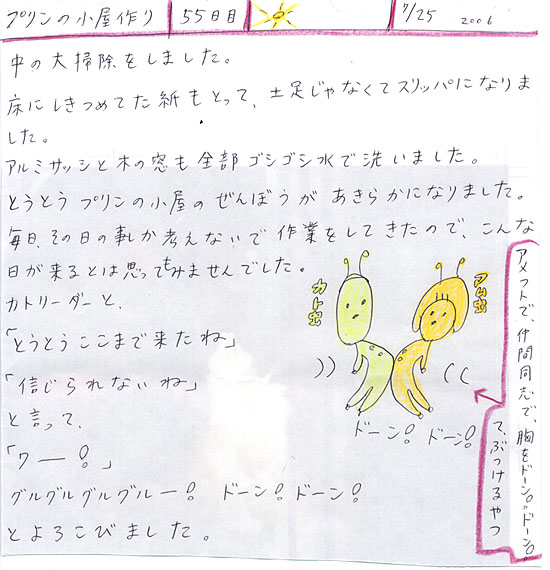 プリンの小屋作り 55日目 7/25 2006
中の大掃除をしました。
床にしきつめてた紙もとって、土足じゃなくてスリッパになりま
した。
アルミサッシと木の窓も全部ゴシゴシ水で洗いました。
とうとうプリンの小屋のぜんぼうがあきらかになりました。
毎日、その日の事しか考えないで作業をしてきたので、こんな
日が来るとは思ってもみませんでした。
カトリーダーと、
「とうとうここまで来たね」
「信じられないね」
と言って、
「ワー!」
グルグルグルグルー! ドーン!ドーン!
とよろこびました。
カト虫
アム虫
ドーン! ドーン!
アメフトで、仲間同志で、胸をドーン!ドーン!
て、ぶつけるやつ